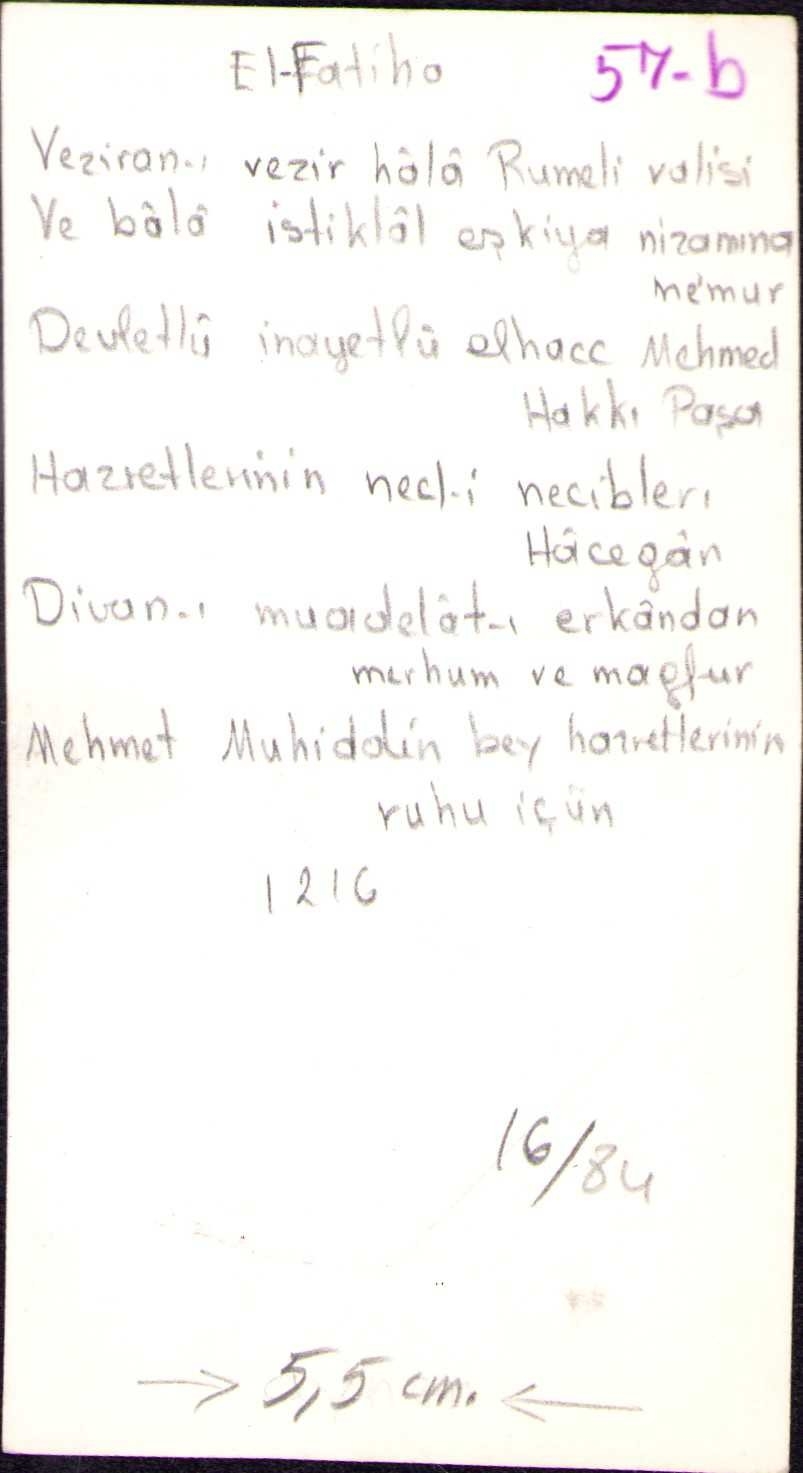 El-Fatiha 57-b
Veziran-ı vezir hâlâ Rumeli valisi
Ve bâlâ istiklâl eşkiya nizamına
me'mur
Devletlû inayetlû elhacc Mehmed
Hakkı Paşa
Hazretlerinin necl-i necibleri
Hâcegân
Divan-ı muadelât-ı erkândan
merhum ve magfur
Mehmet Muhiddin bey hazretlerinin
ruhu içün
1216
16/84
→ 5,5 cm. ←